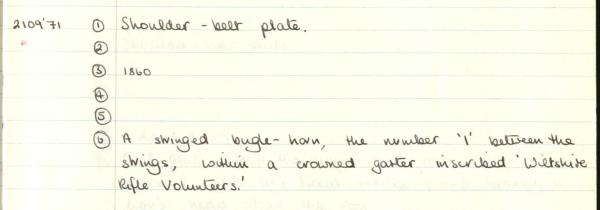 2109'71 ① Shoulder-belt plate.
②
③ 1860
④
⑤
⑥ A stringed bugle-horn, the number '1' between the
strings, within a crowned garter inscribed 'Wiltshire
Rifle Volunteers.'